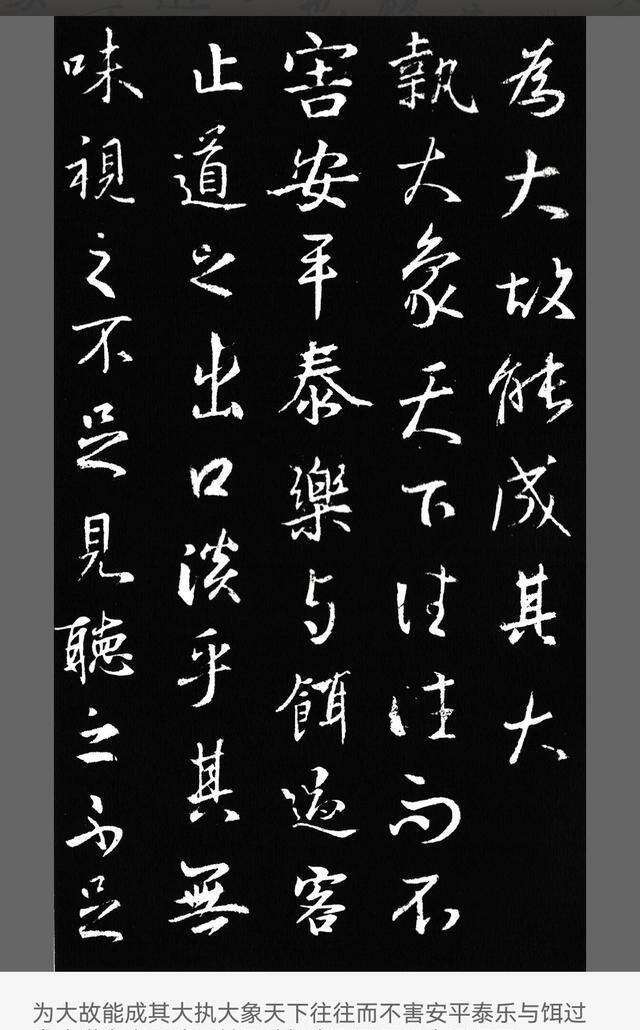 為大故能成其大
執大象天下往往而不
害安平泰樂与餌過客
止道之出口淡乎其無
味視之不足見聽之不足
为大故能成其大执大象天下往往而不害安平泰乐与饵过